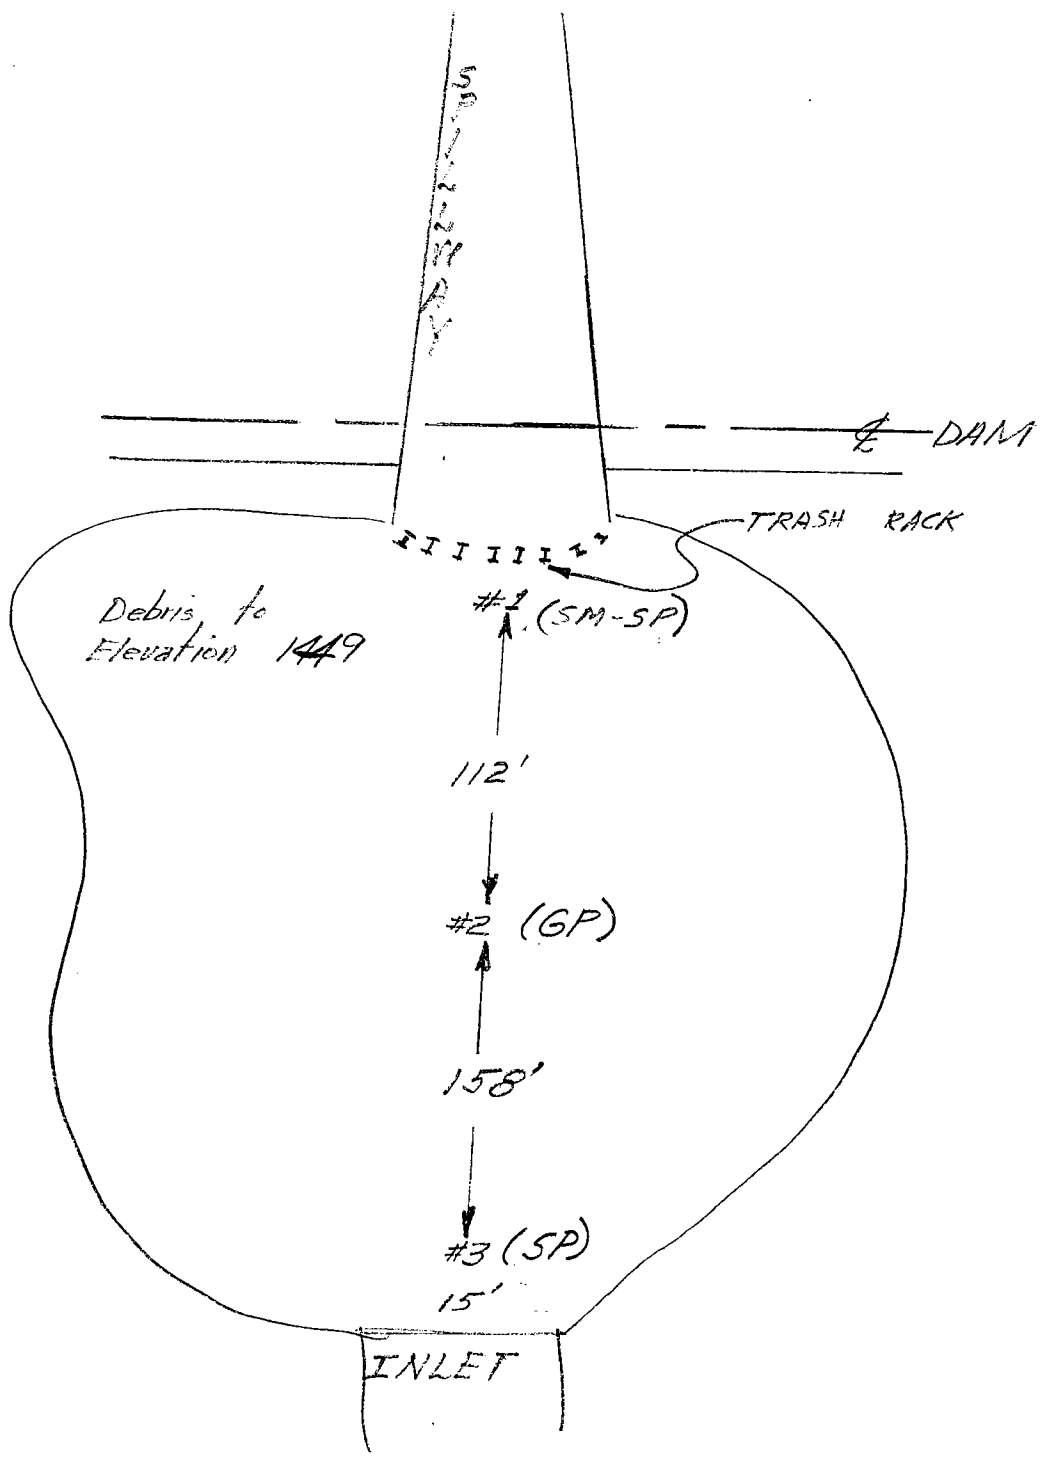 SPILLWAY
℄ DAM
TRASH RACK
#1 (SM-SP)
Debris to
Elevation 1449
112'
#2 (GP)
158'
#3 (SP)
15'
INLET